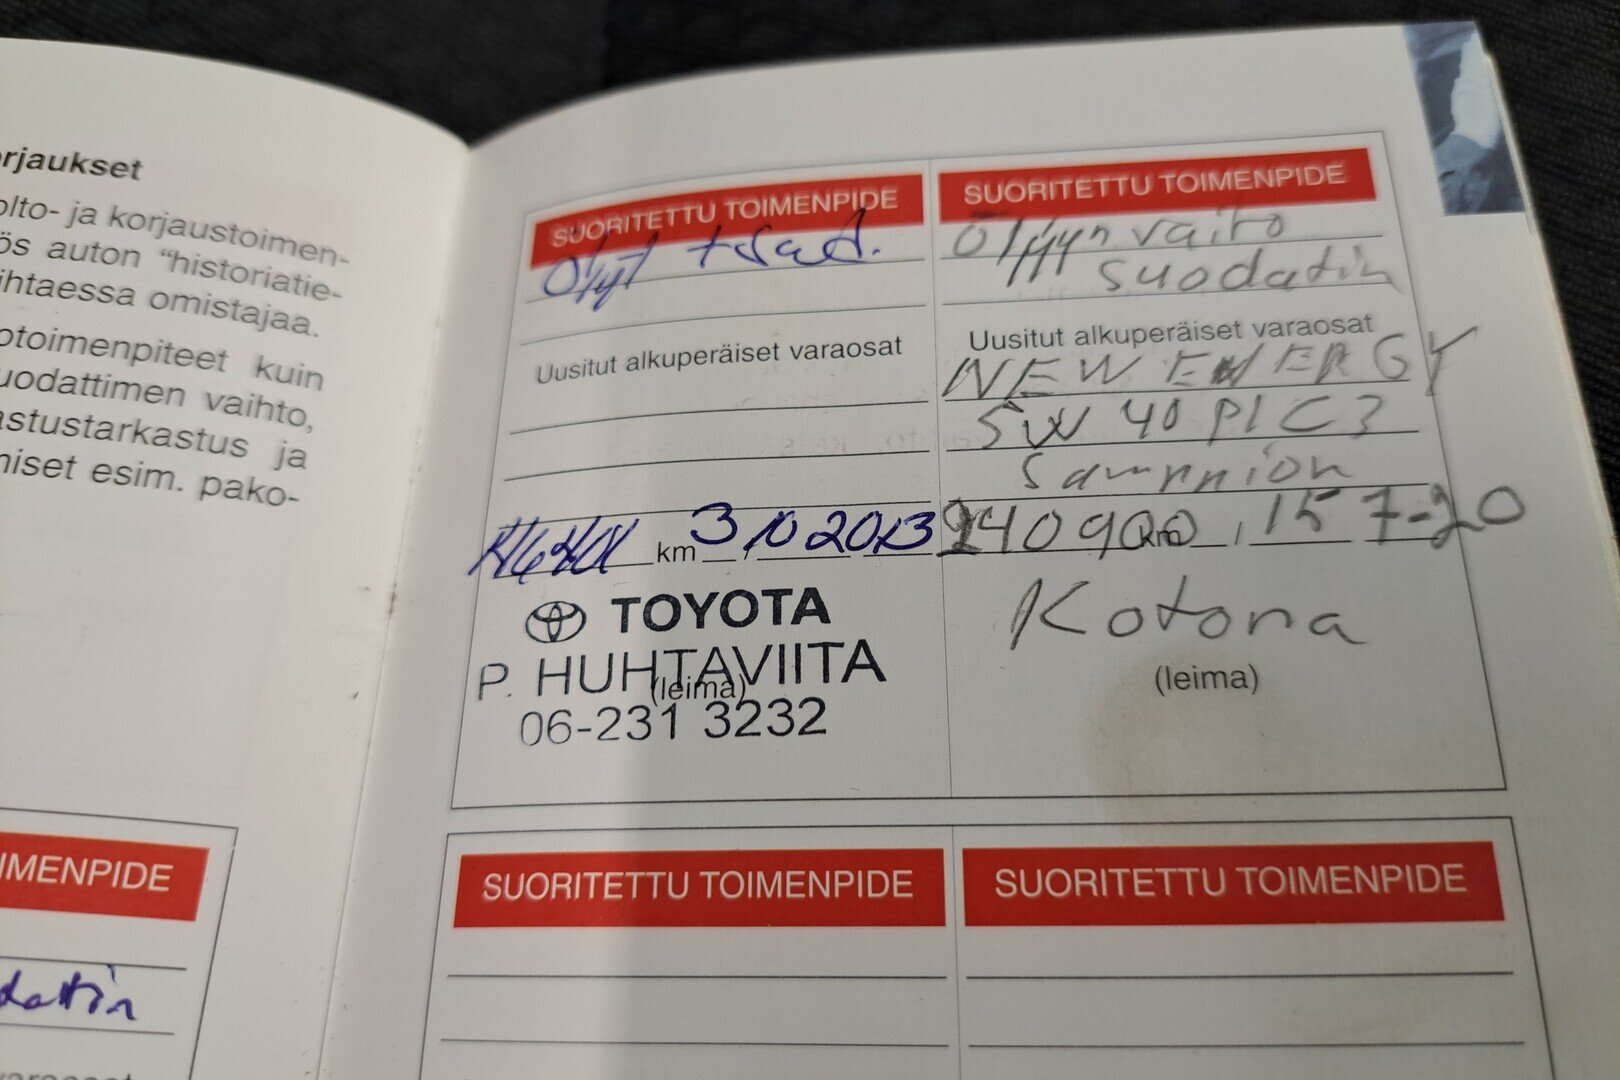 rjaukset
olto- ja korjaustoimen-
ös auton "historiatie-
ihtaessa omistajaa.
otoimenpiteet kuin
uodattimen vaihto,
astustarkastus ja
niset esim. pako-
IMENPIDE
dattin
varaosat
SUORITETTU TOIMENPIDE
Öljyt + suod.
Uusitut alkuperäiset varaosat
km 3,10 2013
TOYOTA
P. HUHTAVIITA
(leima)
06-231 3232
SUORITETTU TOIMENPIDE
Öljyyn vaito
suodatin
Uusitut alkuperäiset varaosat
NEW ENERGY
5W 40 PI C3
Samnnion
240900 km, 15 7-20
Kotona
(leima)
SUORITETTU TOIMENPIDE
SUORITETTU TOIMENPIDE